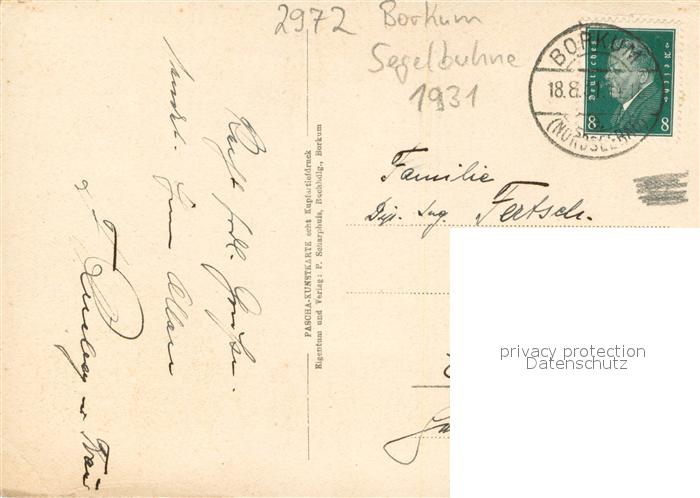 2972 Borkum
Segelbuhne
1931
BORKUM
18.8.
(NORDSEEBAD)
Deutsches Reich
8 8
Familie
Dipl. Ing. Fertsch.
PASCHA-KUNSTKARTE echt Kupfertiefdruck
Eigentum und Verlag: P. Scharphuis, Buchhdlg., Borkum
Recht frdl. Grüße
Ihnen Allen
u. Frau
privacy protection
Datenschutz